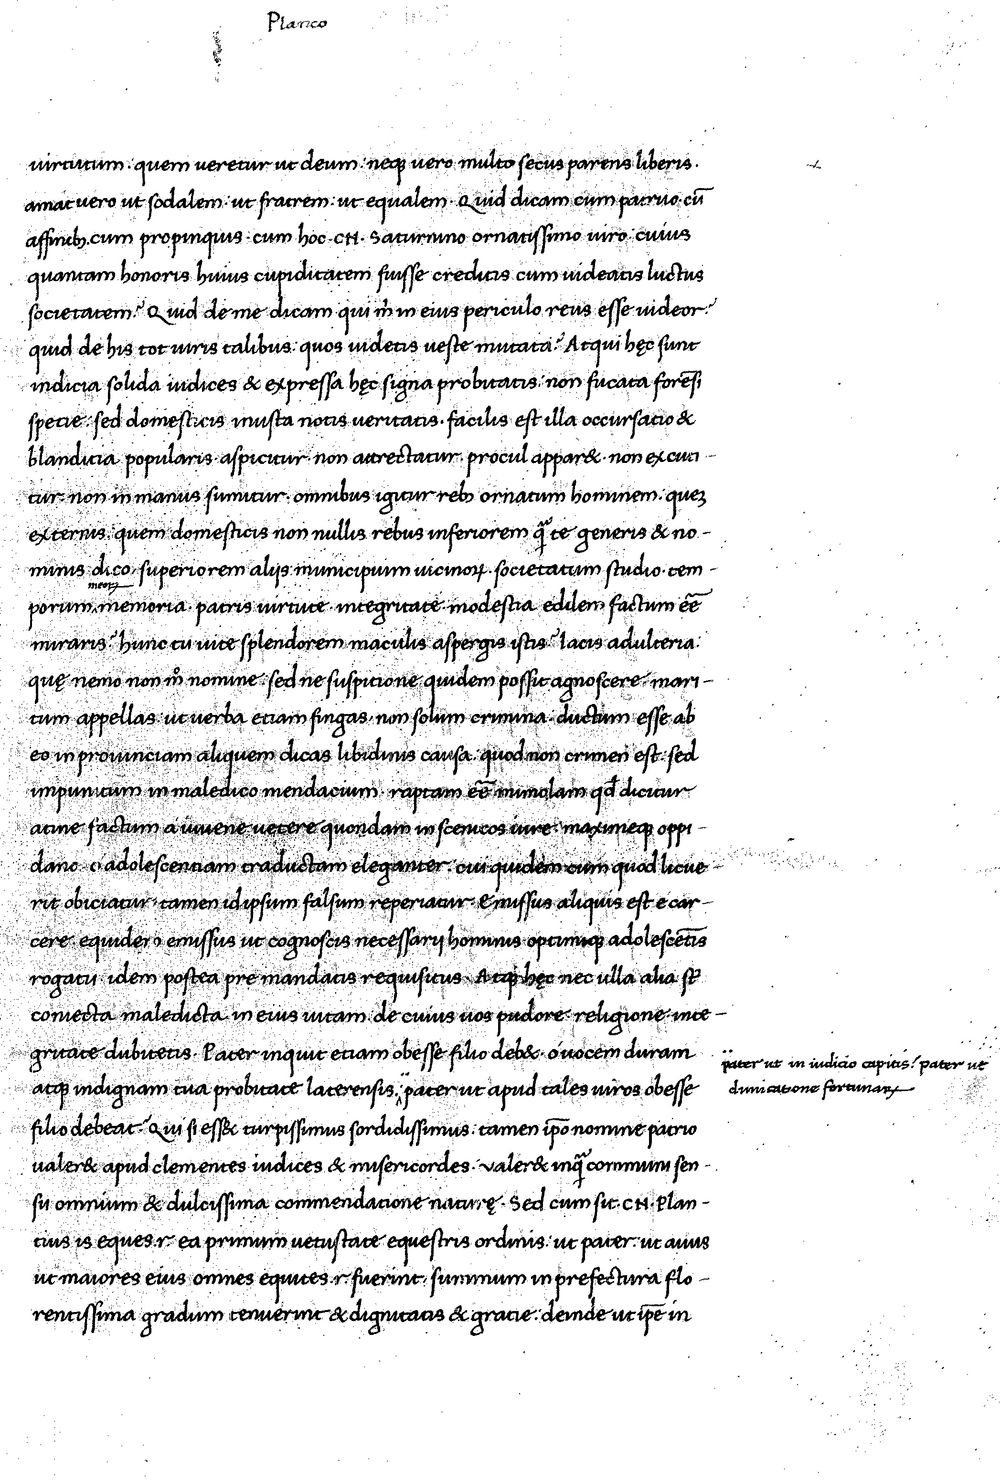 Planco
uirtutum. quem ueretur ut deum. neq; uero multo secus parens liberis.
amat uero ut sodalem. ut fratrem. ut equalem. Quid dicam cum patruo. cū
affinib; cum propinquis. cum hoc. CN. Saturnino ornatissimo uiro. cuius
quantam honoris huius cupiditatem fuisse creditis cum uideatis luctus
societatem? Quid de me dicam qui m̄ in eius periculo reus esse uideor?
quid de his tot uiris talibus. quos uidetis ueste mutata? Atqui hęc sunt
indicia solida iudices & expressa hęc signa probitatis. non fucata forēsi
specie. sed domesticis inusta notis ueritatis. facilis est illa occursatio &
blandicia popularis. aspicitur non attrectatur. procul appar&. non excuti-
tur. non in manus sumitur. omnibus igitur reb; ornatum hominem. quez
externis. quem domesticis non nullis rebus inferiorem quā te generis & no-
minis dico. superiorem aliis municipium uicinoꝝ. societatum studio. tem-
porum meoꝝ memoria. patris uirtute integritate modestia edilem factum eē
miraris? hunc tu uite splendorem maculis aspergis istis? Iacis adulteria.
quę nemo non mº nomine. sed ne suspitione quidem possit agnoscere. mari-
tum appellas. ut uerba etiam fingas. non solum crimina. ductum esse ab
eo in prouinciam aliquem dicas libidinis causa. quod non crimen est. sed
impunitum in maledico mendacium. raptam eē mimolam qd̄ dicitur
atine factum a iuuene uetere quondam in scenicos iure. maximeq; oppi-
dano. o adolescentiam traductam eleganter. cui quidem cum quod licue-
rit obiciatur. tamen id ipsum falsum reperiatur. Emissus aliquis est e car-
cere. equidem emissus ut cognoscis necessarij hominis optimiq; adolescētis
rogatu. idem postea pre mandatis requisitus. Atq; hęc nec ulla alia st̄
coniecta maledicta in eius uitam. de cuius uos pudore. religione. inte-
gritate dubitetis. Pater inquit etiam obesse filio deb&. o uocem duram
atq; indignam tua probitate laterensis. pater ut apud tales uiros obesse
pater ut in iudicio capitis? pater ut
dimicatione fortunaꝝ
filio debeat? Qui si ess& turpissimus sordidissimus. tamen ipō nomine patrio
ualer& apud clementes iudices & misericordes. ualer& inquā communi sen-
su omnium & dulcissima commendatione naturę. Sed cum sit. CN. Plan-
tius is eques. r. ea primum uetustate equestris ordinis. ut pater. ut auus
ut maiores eius omnes equites. r. fuerint. summum in prefectura flo-
rentissima gradum tenuerint & dignitatis & gracie. deinde ut ipē in